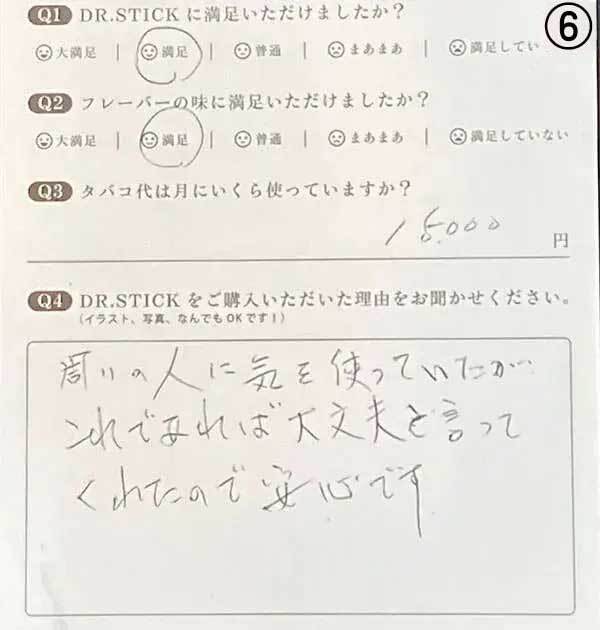 ⑥
Q1 DR.STICK に満足いただけましたか？
大満足 | 満足 | 普通 | まあまあ | 満足してい
Q2 フレーバーの味に満足いただけましたか？
大満足 | 満足 | 普通 | まあまあ | 満足していない
Q3 タバコ代は月にいくら使っていますか？
15.000 円
Q4 DR.STICK をご購入いただいた理由をお聞かせください。
(イラスト、写真、なんでもOKです！)
周りの人に気を使っていたが
これであれば大丈夫と言って
くれたので安心です